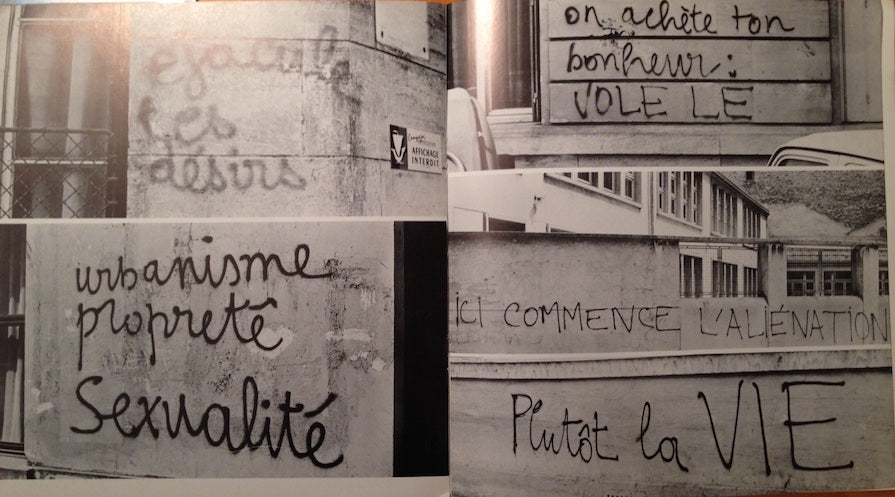 éjacule
tes
désirs
AFFICHAGE
INTERDIT
urbanisme
propreté
Sexualité
on achète ton
bonheur:
VOLE LE
ICI COMMENCE L'ALIÉNATION
Plutôt la VIE